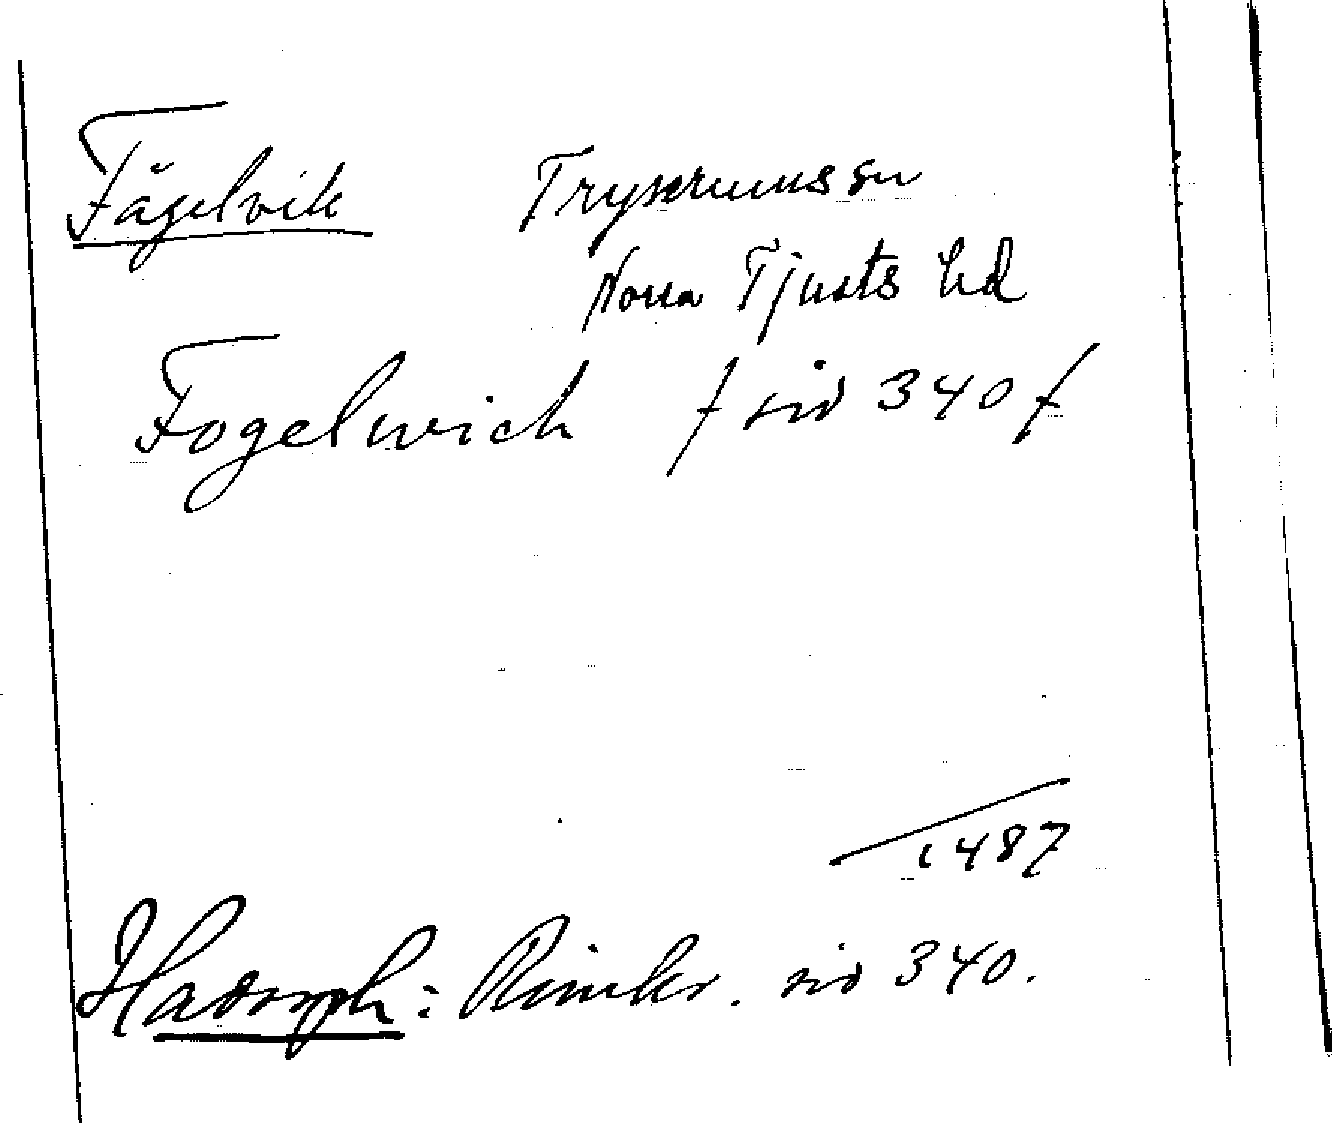 Fågelvik Tryserums sn
Norra Tjusts hd
Fogelwich f sid 340 f
1487
Hadorph: Rimkr. sid 340.